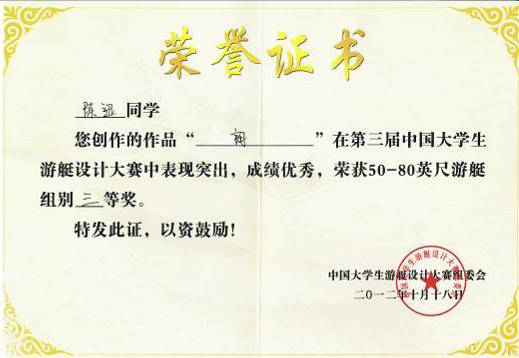 荣誉证书
陈 同学
您创作的作品“ ”在第三届中国大学生
游艇设计大赛中表现突出，成绩优秀，荣获50-80英尺游艇
组别三等奖。
特发此证，以资鼓励！
中国大学生游艇设计大赛组委会
二〇一二年十月十八日
中国大学生游艇设计大赛组委会